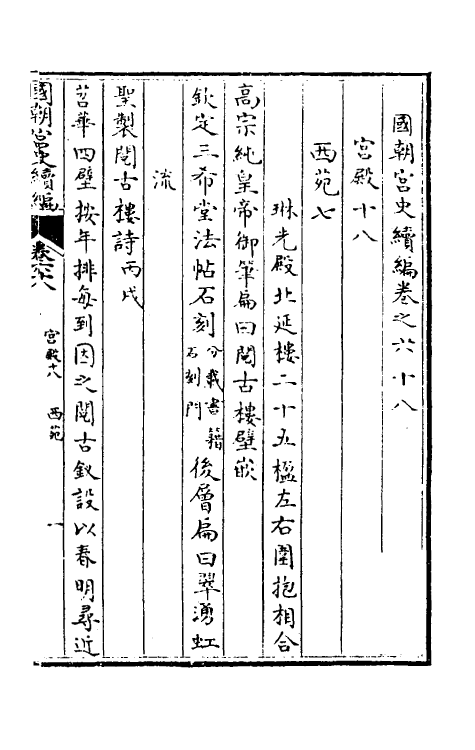 國朝宮史續編卷之六十八
宮殿十八
西苑七
琳光殿北延樓二十五楹左右圍抱相合
高宗純皇帝御筆扁曰閱古樓壁嵌
欽定三希堂法帖石刻分載書籍石刻門後層扁曰翠湧虹
流
聖製閱古樓詩丙戌
苕華四壁按年排每到因之閱古釵設以春明尋近
國朝宮史續編 卷六八 宮殿十八 西苑 一